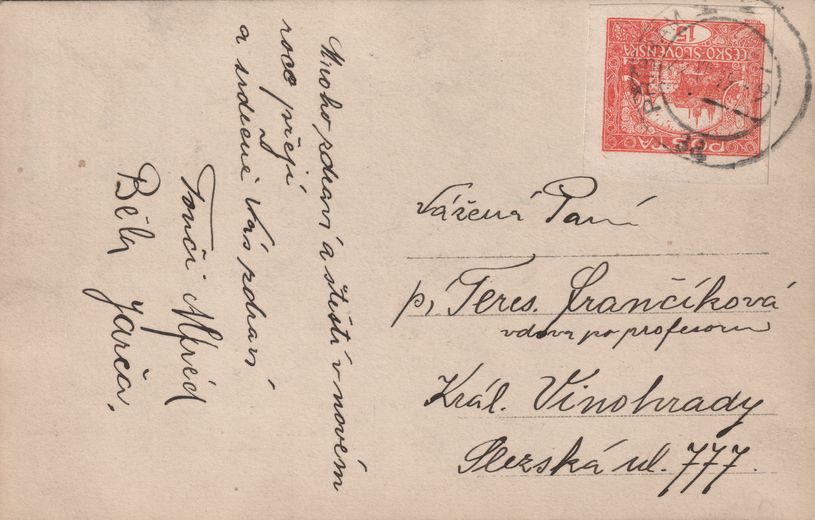 Mnoho zdraví a štěstí v novém
roce přejí
a srdečně Vás zdraví
Tonči Alfréd
Běla Jarča.
POŠTA
ČESKO-SLOVENSKÁ
15
Vážená Paní
p. Teres. Frančíková
vdova po profesoru
Král. Vinohrady
Slezská ul. 777.